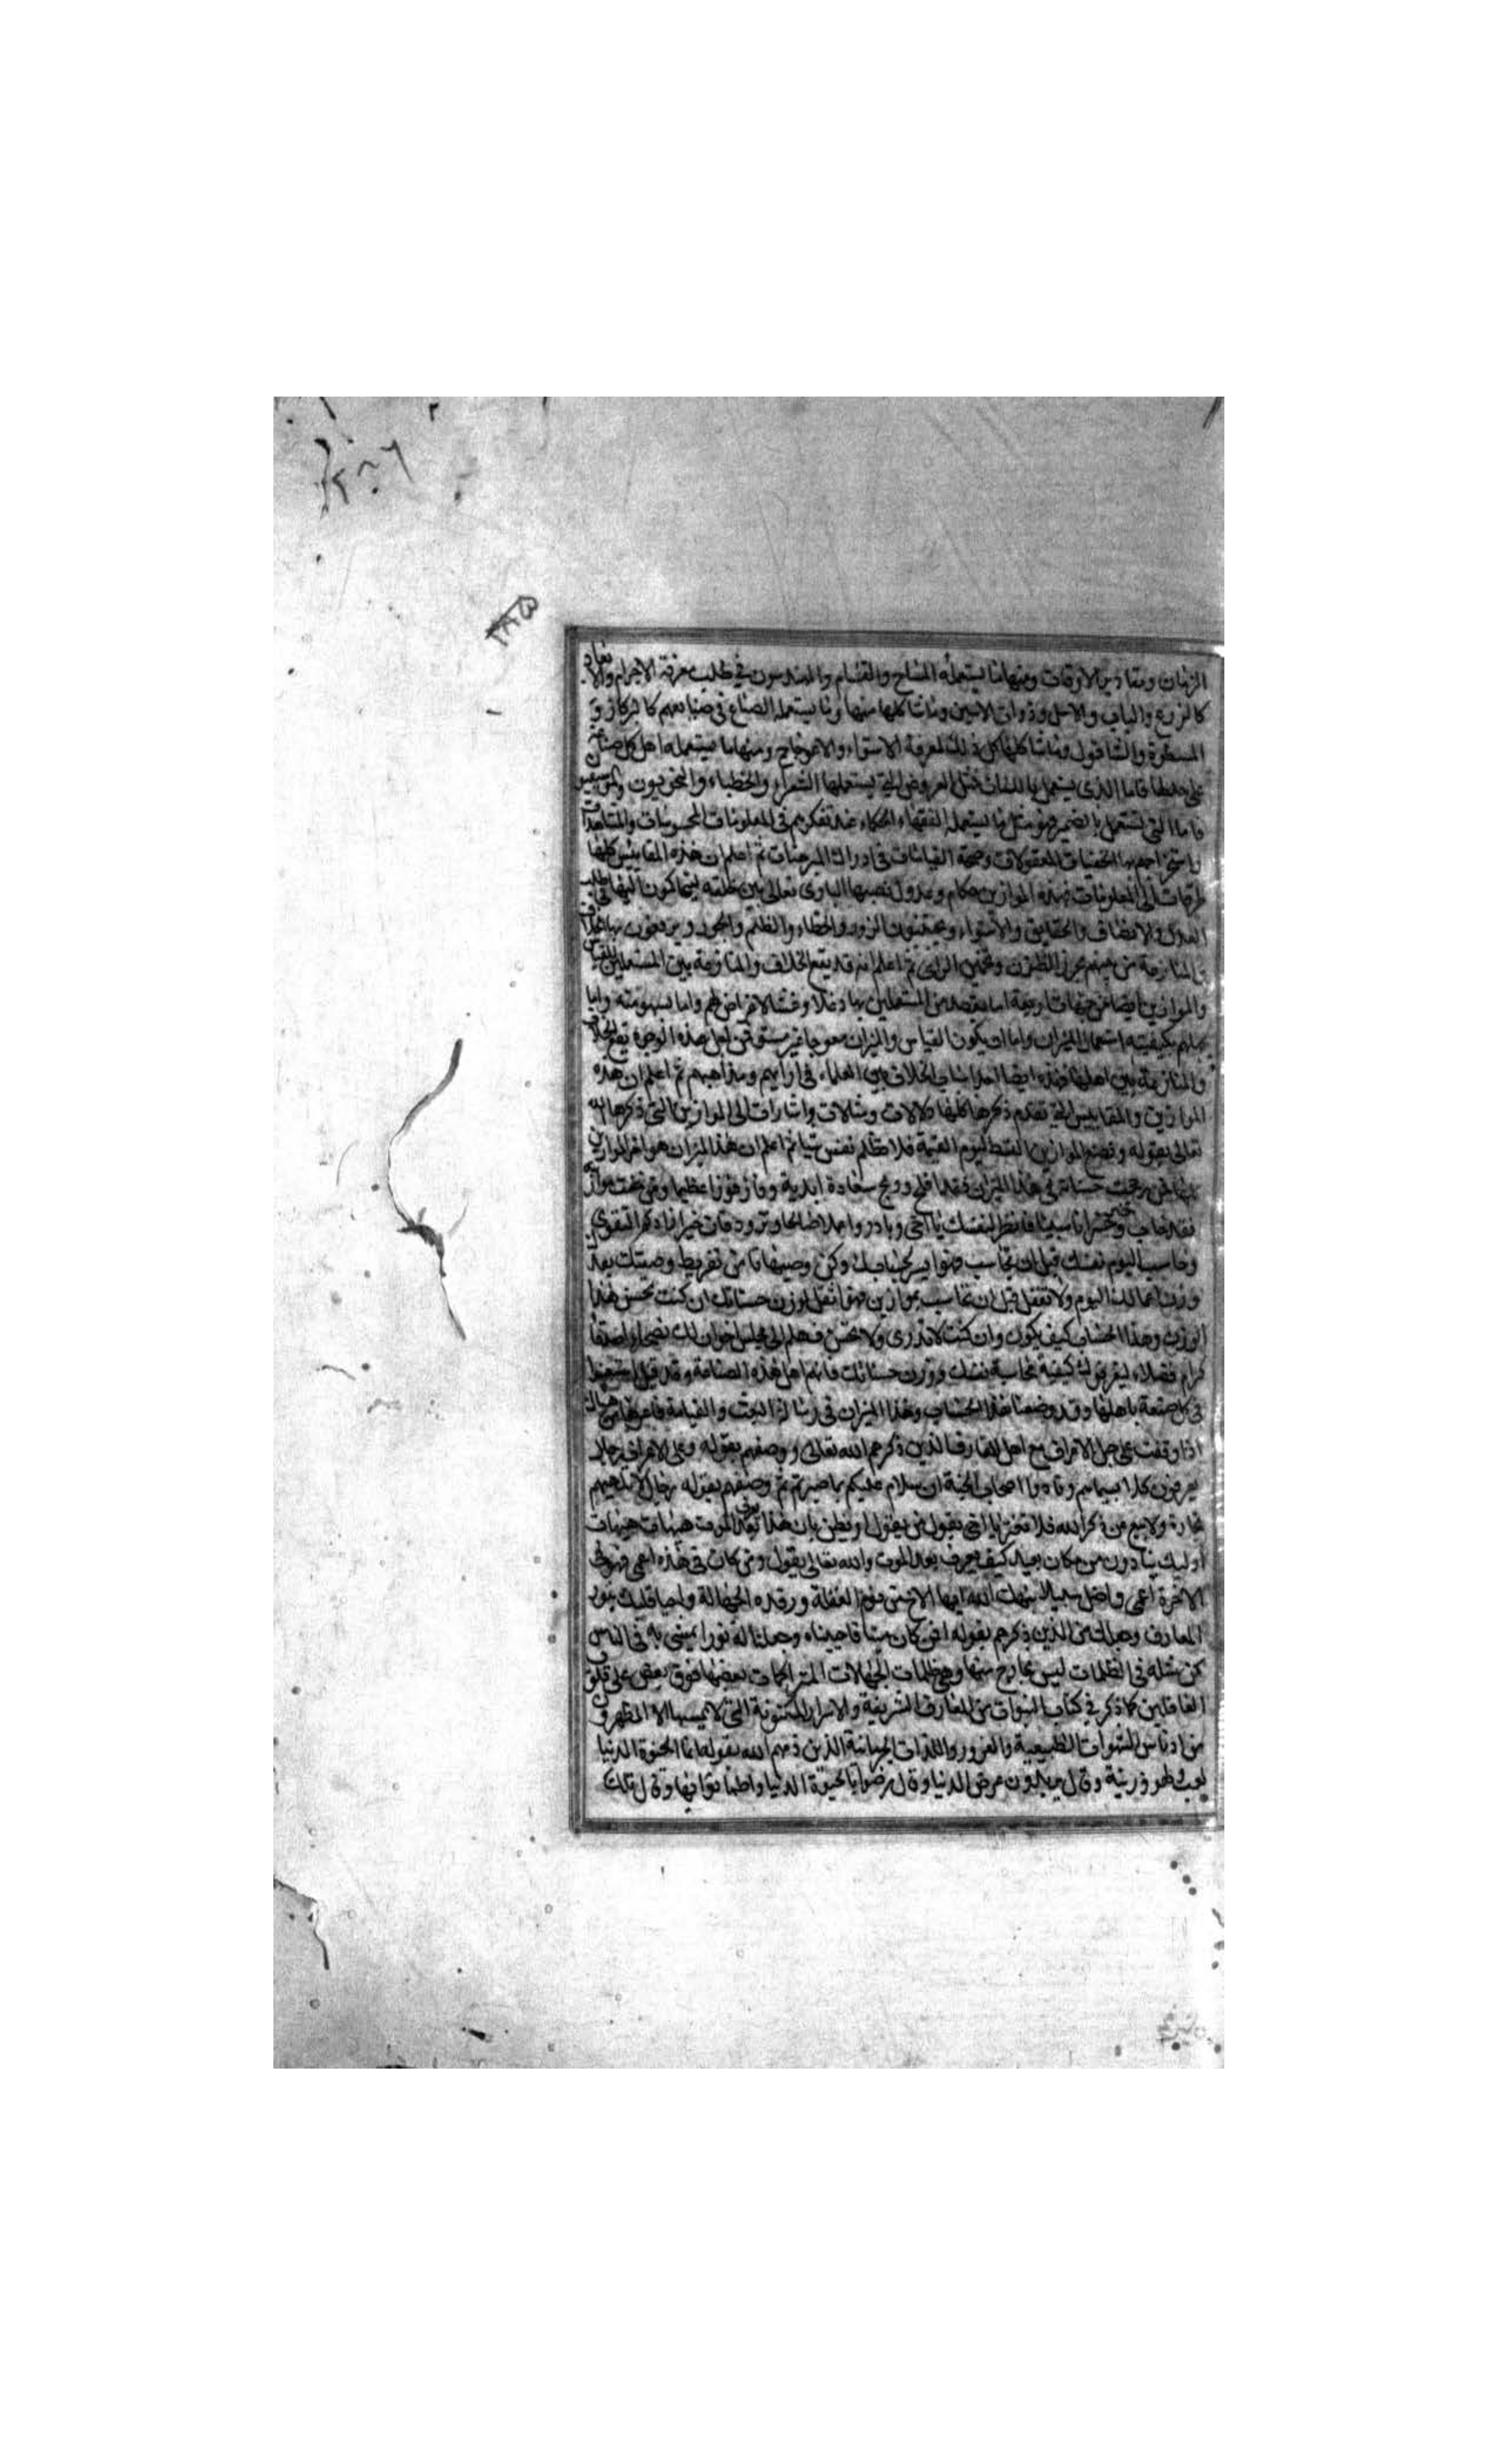 الزمان ومقادير الاوقات ومنها ما يستعمله المساح والقسام والمهندسون في طلب معرفة الاجرام والابعاد
كالذرع والباب والاشل وذوات الاثنين وما شاكلها منها وما يستعمله الصناع في صنايعهم كالبركار و
المسطرة والشاقول وما شاكلها كل ذلك لمعرفة الاستواء والاعوجاج ومنها ما يستعمله اهل كل صناعة
فاما الذي يستعمل باللسان مثل العروض التي يستعملها الشعراء والخطباء والنحويون
فاما التي تستعمل بالضمير فهو مثل ما يستعمله الفقهاء الحكماء عند تفكرهم في المعلومات المحسوسات والمشاهدات
واستخراجهم بها الخفيات المعقولات وصحة القياسات في ادراك المبرهنات ثم اعلم ان هذه المقاييس كلها
طرقات الى المعلومات بهذه الموازين حكام وعدول نصبها الباري تعالى بين خلقه ليتحاكمون اليها في طلب
العدل والانصاف والحقايق والاستواء ويجتنبون الزور والخطاء والظلم والجور ويرفعون بها الخلاف
والمنازعة من بينهم بحرز الظنون وتخمين الراي ثم اعلم انه قد يقع الخلاف والمنازعة بين المستعملين للقياس
والموازين ايضا من جهات اربعة اما بقصد من المستعملين بها دغلا وغشا لاغراض لهم واما لسهو منه واما
بكيفية استعمال الميزان واما ان يكون القياس والميزان معوجا غير مستو فمن اجل هذه الوجوه تقع الخلاف
والمنازعة بين اهلها فهذه ايضا احد اسباب الخلاف بين العلماء في ارايهم ومذاهبهم ثم اعلم ان هذه
الموازين والمقاييس التي تقدم ذكرها كلها دلالات ومثالات واشارات الى الموازين التي ذكرها الله
تعالى بقوله ونضع الموازين القسط ليوم القيمة فلا تظلم نفس شيئا ثم اعلم ان هذا الميزان هو اخر الموازين
رجحت حسناته في هذا الميزان فقد افلح وربح سعادة ابدية وفاز فوزا عظيما ومن خفت موازينه
فقد خاب وخسر خسرانا مبينا فانظر لنفسك يا اخي وبادر واعمل عملا صالحا وتزود فان خير الزاد التقوى
وحاسب اليوم نفسك قبل ان تحاسب فهو ايسر لحسابك وكن وصيها ما من تفريط وصيتك بعدك
وزن اعمالك اليوم ولا تغفل قبل ان تحاسب بموازين فهو اثقل لوزن حسناتك ان كنت تحسن هذا
الوزن وهذا الحساب كيف يكون وان كنت لا تدري ولا تحسن فهلم الى مجلس اخوان لك نصحاء اصدقاء
كرام فضلاء ليعرفوك كيفية محاسبة نفسك ووزن حسناتك فانهم اهل هذه الصناعة وقد قيل استعينوا
في كل صنعة باهلها وقد وضعنا هذا الحساب وهذا الميزان في رسالة البعث والقيامة فاعرفها من هناك
اذا وقفت على جبل الاعراف مع اهل المعارف الذين ذكرهم الله تعالى ووصفهم بقوله وعلى الاعراف رجال
يعرفون كلا بسيماهم ونادوا اصحاب الجنة ان سلام عليكم بما صبرتم ثم وصفهم بقوله رجال لا تلهيهم
تجارة ولا بيع عن ذكر الله فلا تغتر يا اخي بقول من يقول او يظن بان هذا يعرف بعد الموت هيهات هيهات
اوليك ينادون من مكان بعيد كيف يعرف بعد الموت والله تعالى يقول ومن كان في هذه اعمى فهو في
الاخرة اعمى واضل سبيلا نبهك الله ايها الاخ من نوم الغفلة ورقدة الجهالة واحيا قلبك بنور
المعارف وجعلك من الذين ذكرهم بقوله افمن كان ميتا فاحييناه وجعلنا له نورا يمشي به في الناس
كمن مثله في الظلمات ليس بخارج منها وهي ظلمات الجهالات المتراكمات بعضها فوق بعض على قلوب
الغافلين كما ذكر في كتاب النبوات من المعارف الشريفة والاسرار المكنونة التي لا يمسها الا المطهرون
من ادناس الشهوات الطبيعية والغرور واللذات الجرمانية الذين ذمهم الله بقوله انما الحيوة الدنيا
لعب ولهو وزينة وقال يريدون عرض الدنيا وقال رضوا بالحيوة الدنيا واطمانوا بها وقال تلك